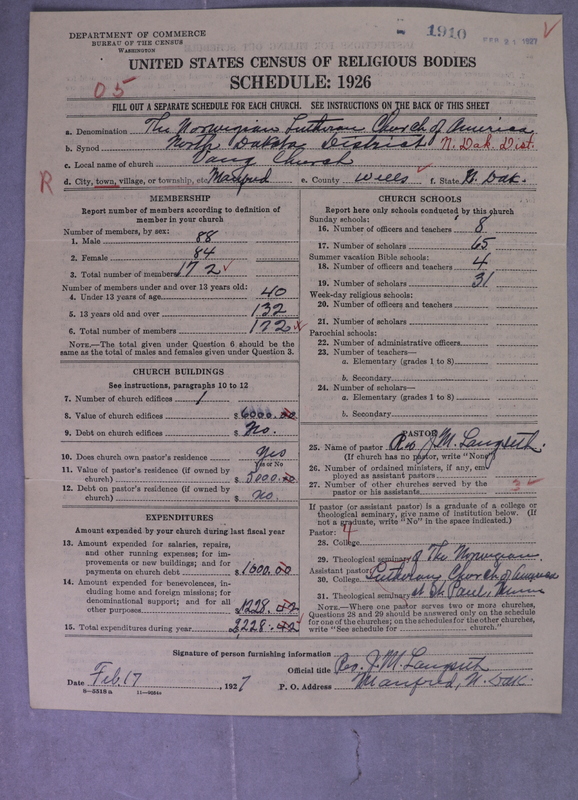 DEPARTMENT OF COMMERCE
BUREAU OF THE CENSUS
WASHINGTON
1910
FEB 21 1927
UNITED STATES CENSUS OF RELIGIOUS BODIES
SCHEDULE: 1926
05
FILL OUT A SEPARATE SCHEDULE FOR EACH CHURCH. SEE INSTRUCTIONS ON THE BACK OF THIS SHEET
a. Denomination The Norwegian Lutheran Church of America
b. Synod North Dakota District N. Dak. Dist.
c. Local name of church Vang Church
R d. City, town, village, or township, etc. Manfred e. County Wells f. State N. Dak.
MEMBERSHIP
Report number of members according to definition of member in your church
Number of members, by sex:
1. Male 88
2. Female 84
3. Total number of members 172
Number of members under and over 13 years old:
4. Under 13 years of age 40
5. 13 years old and over 132
6. Total number of members 172
NOTE.—The total given under Question 6 should be
same as the total of males and females given under Question 3.
CHURCH BUILDINGS
See instructions, paragraphs 10 to 12
7. Number of church edifices 1
8. Value of church edifices $ 6000.00
9. Debt on church edifices $ No.
10. Does church own pastor's residence? Yes
Yes or No
11. Value of pastor's residence (if owned by
church) $ 5000.00
12. Debt on pastor's residence (if owned by
church) $ No.
EXPENDITURES
Amount expended by your church during last fiscal year
13. Amount expended for salaries, repairs,
and other running expenses; for im-
provements or new buildings; and for
payments on church debt $ 1000.00
14. Amount expended for benevolences, in-
cluding home and foreign missions; for
denominational support; and for all
other purposes $ 1228.42
15. Total expenditures during year $ 2228.42
CHURCH SCHOOLS
Report here only schools conducted by this church
Sunday schools:
16. Number of officers and teachers 8
17. Number of scholars 65
Summer vacation Bible schools:
18. Number of officers and teachers 4
19. Number of scholars 31
Week-day religious schools:
20. Number of officers and teachers
21. Number of scholars
Parochial schools:
22. Number of administrative officers
23. Number of teachers—
a. Elementary (grades 1 to 8)
b. Secondary
24. Number of scholars—
a. Elementary (grades 1 to 8)
b. Secondary
PASTOR
25. Name of pastor Rev J. M. Langseth
(If church has no pastor, write "None")
26. Number of ordained ministers, if any, em-
ployed as assistant pastors
27. Number of other churches served by the
pastor or his assistants 3
If pastor (or assistant pastor) is a graduate of a college or
theological seminary, give name of institution below. (If
not a graduate, write "No" in the space indicated.)
Pastor:
28. College
29. Theological seminary of The Norwegian
Assistant pastor:
30. College Lutheran Church of America
31. Theological seminary at St. Paul, Minn
NOTE.—Where one pastor serves two or more churches,
Questions 28 and 29 should be answered only on the schedule
for one of the churches; on the schedules for the other churches,
write "See schedule for church."
Signature of person furnishing information
Official title Rev. J. M. Langseth
Date Feb. 17, 1927 P. O. Address Manfred, N. Dak.
8—5318a 11—9084a